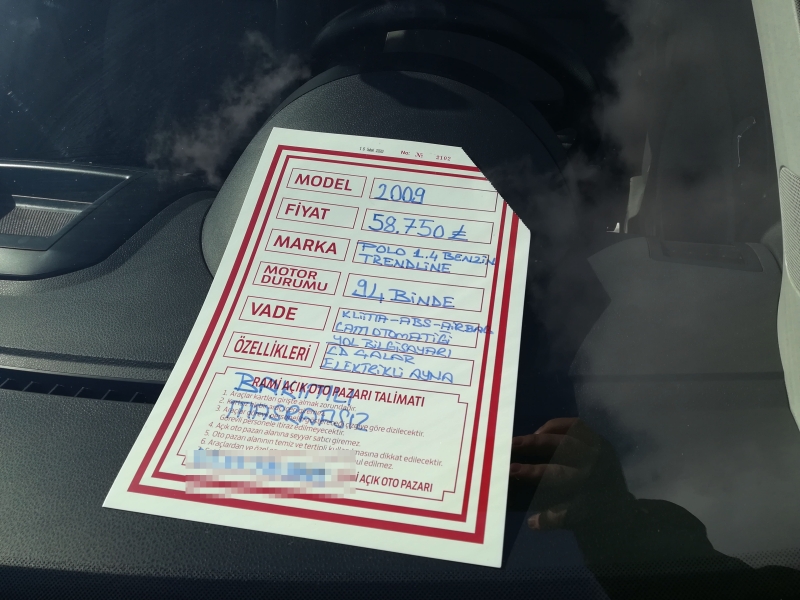 No: № 2107
MODEL 2009
FİYAT 58.750 ₺
MARKA POLO 1.4 BENZİN
TRENDLİNE
MOTOR DURUMU 94 BİNDE
VADE KLİMA-ABS-AİRBAG
CAM OTOMATİĞİ
YOL BİLGİSAYARI
ÖZELLİKLERİ CD ÇALAR
ELEKTRİKLİ AYNA
RAMİ AÇIK OTO PAZARI TALİMATI
BAKIMLI
MASRAFSIZ
1. Araçlar kartları girişte almak zorundadır.
göre dizilecektir.
personele ibraz edilmeyecektir.
4. Açık oto pazarı alanına seyyar satıcı giremez.
5. Oto pazarı alanının temiz ve tertipli masına dikkat edilecektir.
6. Araçlardan ve özel ul edilmez.
Mİ AÇIK OTO PAZARI